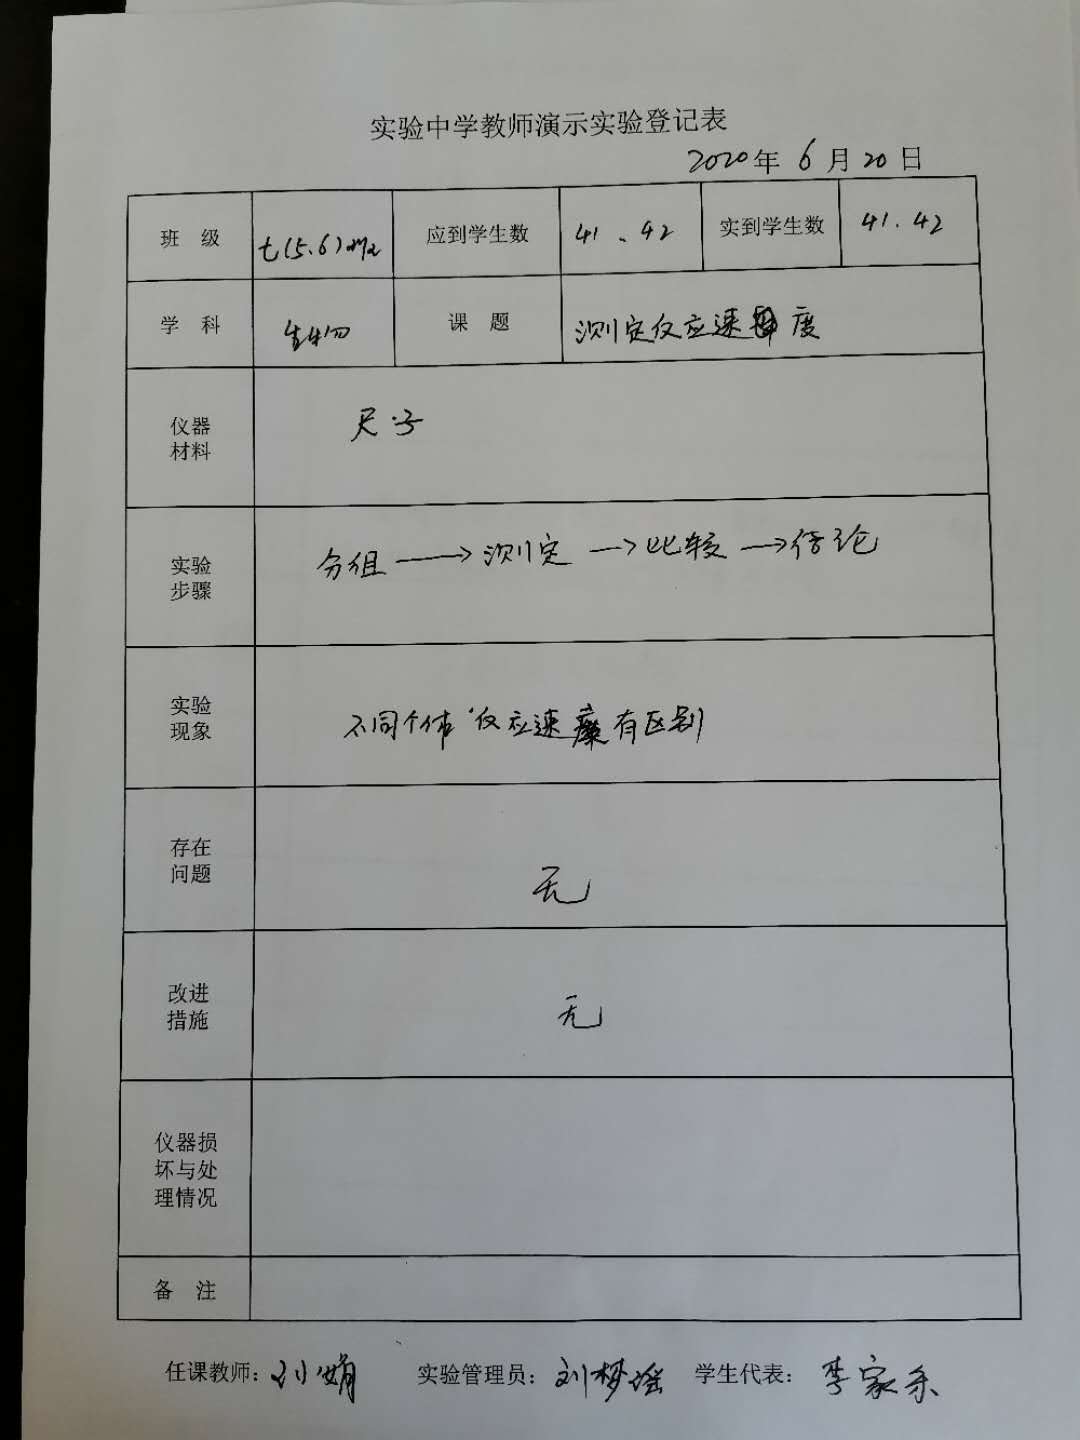 实验中学教师演示实验登记表
2020年 6月20日
班 级 七(5.6) 应到学生数 41、42 实到学生数 41.42
学 科 生物 课 题 测定反应速度
仪器
材料
尺子
实验
步骤
分组→测定→比较→结论
实验
现象
不同个体 反应速度有区别
存在
问题
无
改进
措施
无
仪器损
坏与处
理情况
备 注
任课教师:刘娟 实验管理员:刘梦瑶 学生代表:李家乐